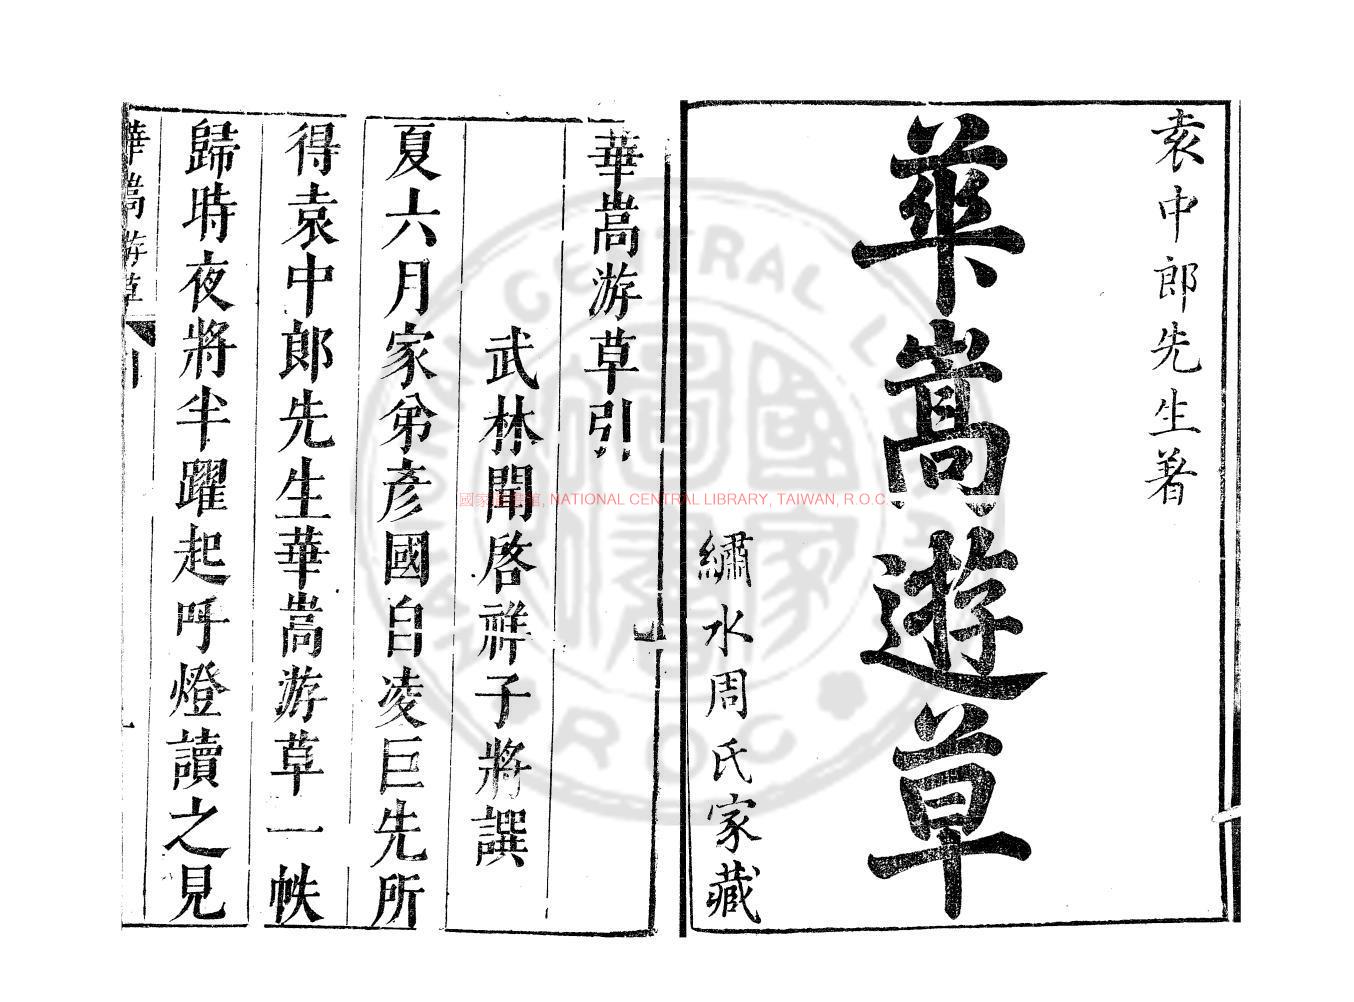 袁中郎先生著
華嵩遊草
繡水周氏家藏
華嵩游草引
武林聞啓祥子將譔
夏六月家弟彦國自凌巨先所
得袁中郎先生華嵩游草一帙
歸時夜將半躍起呼燈讀之見
華嵩游草 引 一
國家圖書館, NATIONAL CENTRAL LIBRARY, TAIWAN, R.O.C